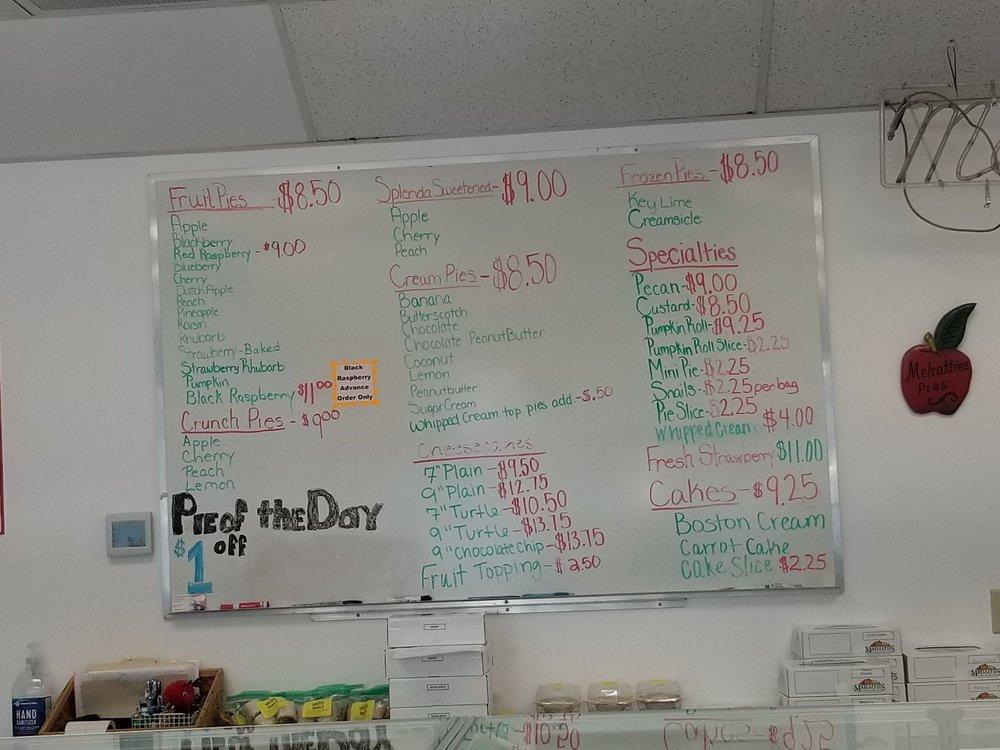 Fruit Pies - $8.50
Apple
Blackberry
Red Raspberry - $9.00
Blueberry
Cherry
Dutch Apple
Peach
Pineapple
Raisin
Rhubarb
Strawberry - Baked
Strawberry Rhubarb
Pumpkin
Black Raspberry $11.00
Black
Raspberry
Advance
Order Only
Crunch Pies - $9.00
Apple
Cherry
Peach
Lemon
Pie of the Day
$1 off
Splenda Sweetened - $9.00
Apple
Cherry
Peach
Cream Pies - $8.50
Banana
Butterscotch
Chocolate
Chocolate PeanutButter
Coconut
Lemon
Peanutbutter
Sugar Cream
Whipped Cream top pies add - $.50
Cheesecakes
7" Plain - $9.50
9" Plain - $12.75
7" Turtle - $10.50
9" Turtle - $13.75
9" Chocolate Chip - $13.75
Fruit Topping - $2.50
Frozen Pies - $8.50
Key Lime
Creamsicle
Specialties
Pecan - $9.00
Custard - $8.50
Pumpkin Roll - $9.25
Pumpkin Roll Slice - $2.25
Mini Pie - $2.25
Snails - $2.25 per bag
Pie Slice - $2.25
Whipped Cream $4.00
Fresh Strawberry $11.00
Cakes - $9.25
Boston Cream
Carrot Cake
Cake Slice $2.25
Mekatties
Pies
HAND
SANITIZER